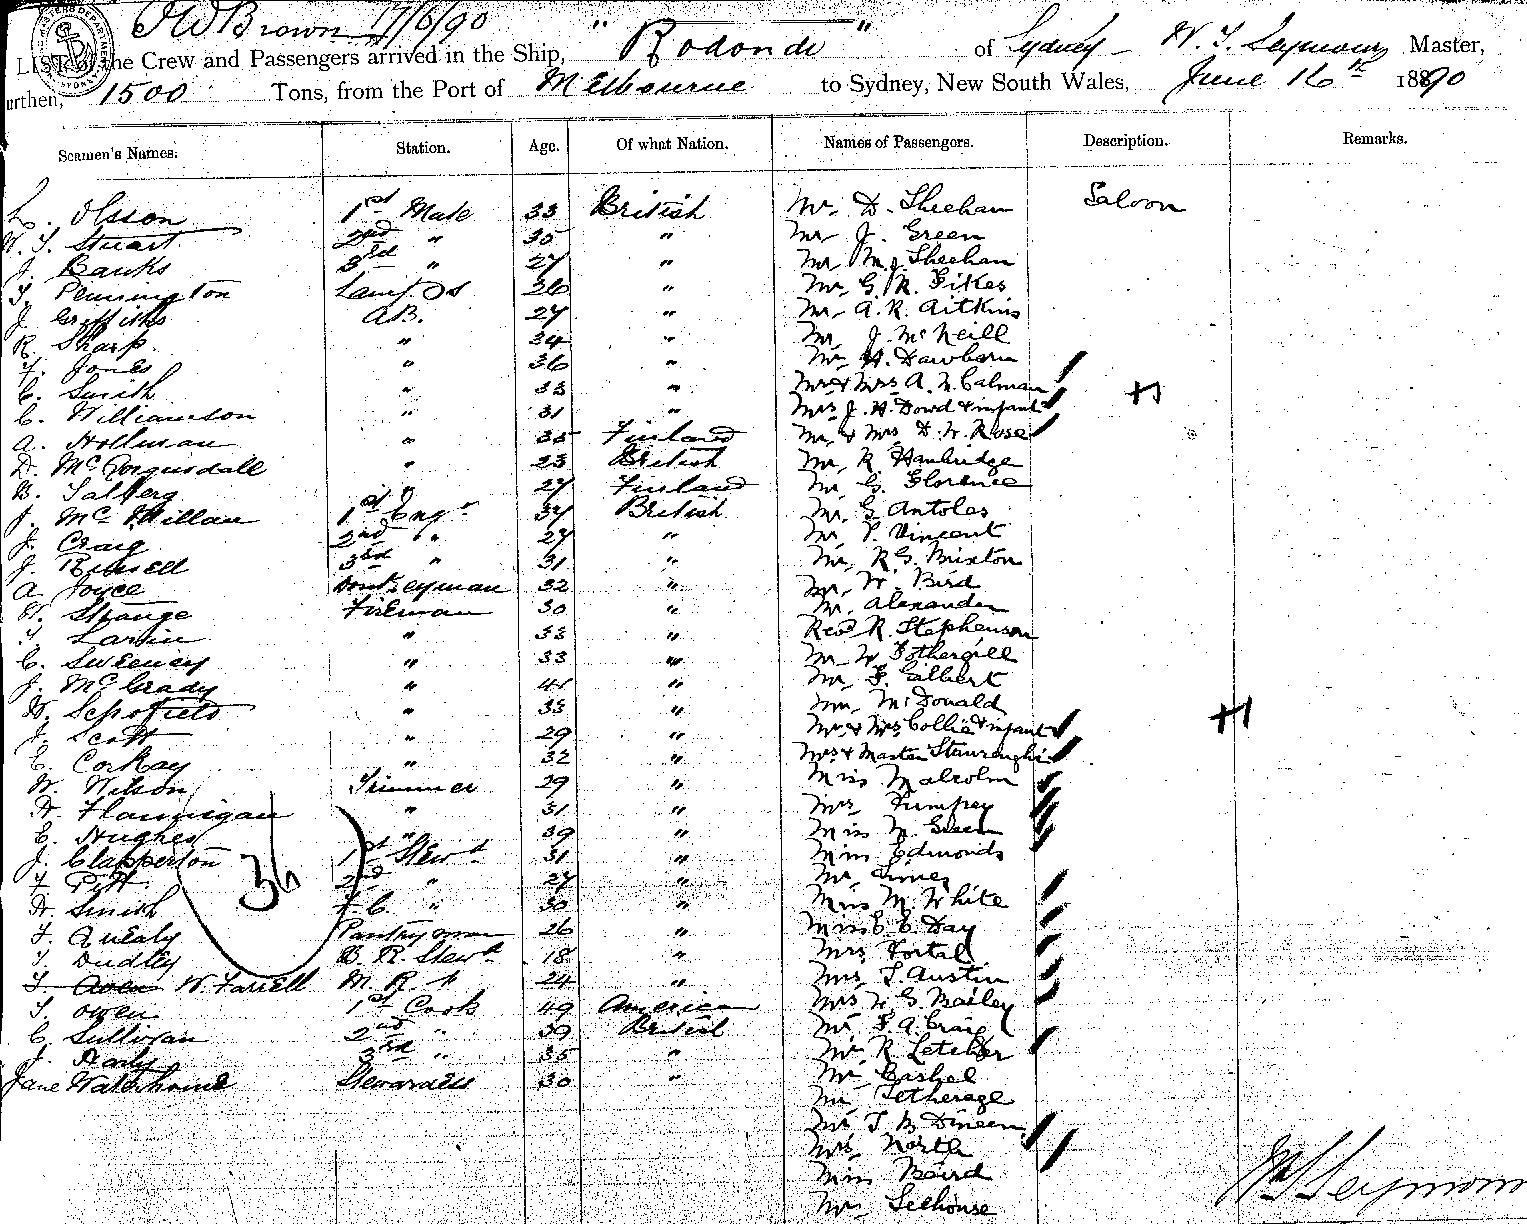 J W Brown 17/6/90
LIST of the Crew and Passengers arrived in the Ship, "Rodondo" of Sydney W. T. Seymour Master,
urthen, 1500 Tons, from the Port of Melbourne to Sydney, New South Wales, June 16th 1890
Seamen's Names. Station. Age. Of what Nation. Names of Passengers. Description. Remarks.
L. Olsson 1st Mate 33 British Mr. D. Sheehan Saloon
W. T. Stuart 2nd " 35 " Mr J. Green
J. Banks 3rd " 27 " Mr M. J. Sheehan
T. Pennington Lamps 26 " Mr. G. R. Fikes
J. Griffiths A.B. 27 " Mr A. R. Aitkins
R. Sharp " 34 " Mr J. McNeill
T. Jones " 36 " Mr H. Dawbarn
C. Smith " 33 " Mr & Mrs A. N. Calman
C. Williamson " 31 " Mrs J. H. Dowd & infant
A. Hollman " 35 Finland Mr & Mrs D. W. Rose
D. " 23 British Mr. R. Hambridge
B. Salberg " 27 Finland Mr G. Florence
J. McMillan 1st Engr 37 British Mr. G. Antoles
J. Craig 2nd " 27 " Mr P. Vincent
J. Russell 3rd " 31 " Mr. R. G. Brixton
A. Joyce Donkeyman 32 " Mr. W. Bird
W. Strange Fireman 30 " Mr. Alexander
T. Larkin " 33 " Revd R. Stephenson
C. Sweeney " 33 " Mr W. Fothergill
J. McGrady " 41 " Mr F. Gilbert
H. Schofield " 33 " Mr McDonald
J. Scott " 29 " Mr & Mrs Collie & infant
C. Corkay " 32 " Mrs & Master
W. Wilson Trimmer 29 " Miss Malcolm
H. Flannigan " 31 " Mrs Pumfrey
E. Hughes " 39 " Miss M. Green
J. Clapperton 1st Stewd 31 " Miss Edmonds
T. Pitt 2nd " 27 " Mr
H. Smith F.C. " 30 " Miss M. White
T. Quealy Pantryman 26 " Miss E. E. Day
T. Dudley B. R. Stewd 18 " Mrs Fortal
T. Owen W. Farrell M. R. " 24 " Mrs T. Austin
T. Owen 1st Cook 49 American Mrs W. G. Bailey
C. Sullivan 2nd " 39 British Mr F. A. Craig
J. Hardy 3rd " 35 " Mr R. Letcher
Jane Waterhouse Stewardess 30 " Mr Cashel
Mr Tetherage
Mr T. B. Dineen
Mrs North
Miss Baird
Mr Seehouse
36
W T Seymour